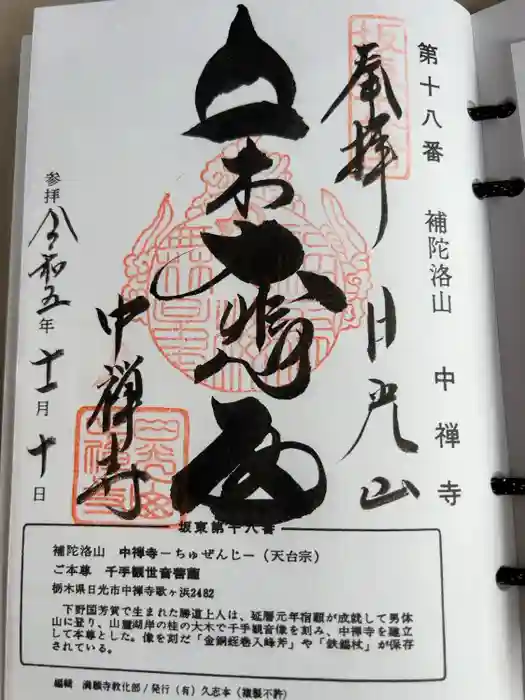 第十八番 補陀洛山 中禅寺
奉拝
日光山
中禅寺
参拝 令和五年十一月十日
坂東第十八番
補陀洛山 中禅寺ーちゅぜんじー(天台宗)
ご本尊 千手観世音菩薩
栃木県日光市中禅寺歌ヶ浜2482
下野国芳賀で生まれた勝道上人は、延暦元年宿願が成就して男体
山に登り、山麓湖岸の桂の大木で千手観音像を刻み、中禅寺を建立
して本尊とした。像を刻だ「金銅蛭巻入峰斧」や「鉄錫杖」が保存
されている。
編輯 満願寺教化部/発行(有)久志本(複製不許)